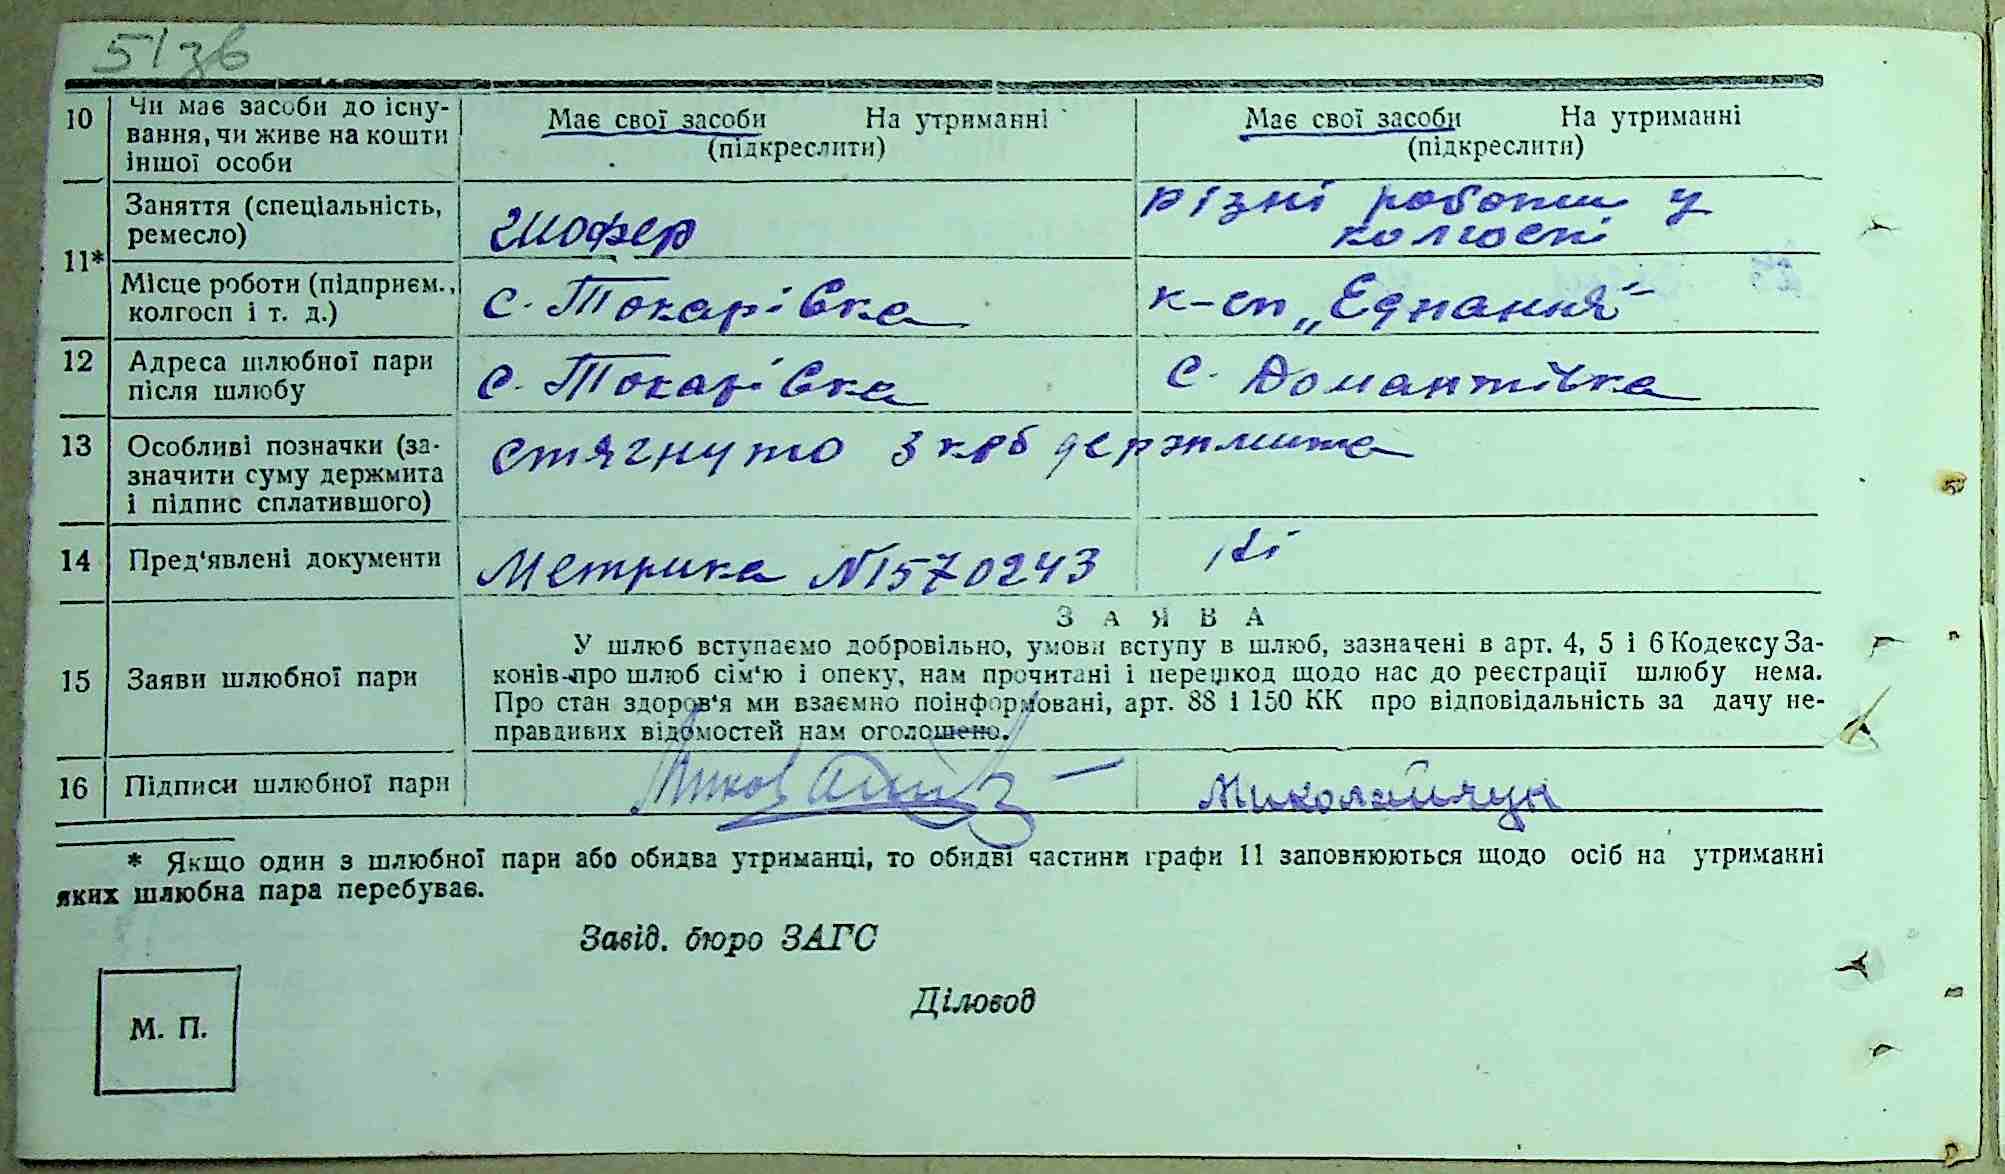 51зв
10 Чи має засоби до існу-
вання, чи живе на кошти
іншої особи
Має свої засоби На утриманні
(підкреслити)
Має свої засоби На утриманні
(підкреслити)
11*
Заняття (спеціальність,
ремесло)
Шофер
різні роботи у
колгоспі
Місце роботи (підприєм.,
колгосп і т. д.)
с. Токарівка
к-сп „Єднання"
12 Адреса шлюбної пари
після шлюбу
с. Токарівка
с. Домантівка
13 Особливі позначки (за-
значити суму держмита
і підпис сплатившого)
стягнуто 3 крб держмита
14 Пред'явлені документи
Метрика №1570243
15 Заяви шлюбної пари
ЗАЯВА
У шлюб вступаємо добровільно, умови вступу в шлюб, зазначені в арт. 4, 5 і 6 Кодексу За-
конів про шлюб сім'ю і опеку, нам прочитані і перешкод щодо нас до реєстрації шлюбу нема.
Про стан здоров'я ми взаємно поінформовані, арт. 88 і 150 КК про відповідальність за дачу не-
правдивих відомостей нам оголошено.
16 Підписи шлюбної пари
Миколайчук
* Якщо один з шлюбної пари або обидва утриманці, то обидві частини графи 11 заповнюються щодо осіб на утриманні
яких шлюбна пара перебуває.
Завід. бюро ЗАГС
Діловод
М. П.